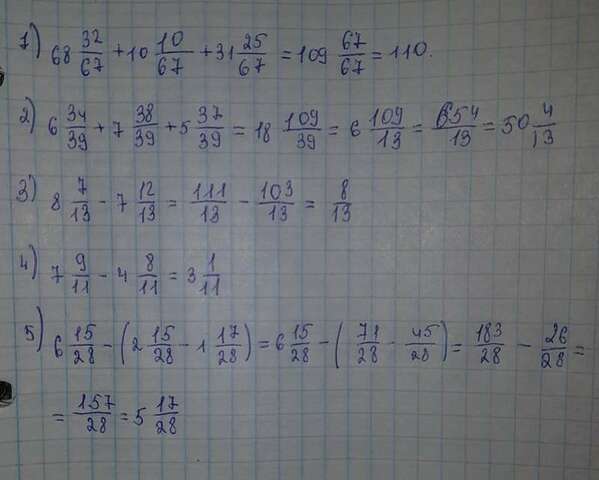 1) 68 32/67 + 10 10/67 + 31 25/67 = 109 67/67 = 110.
2) 6 34/39 + 7 38/39 + 5 37/39 = 18 109/39 = 6 109/13 = 654/13 = 50 4/13
3) 8 7/13 - 7 12/13 = 111/13 - 103/13 = 8/13
4) 7 9/11 - 4 8/11 = 3 1/11
5) 6 15/28 - (2 15/28 - 1 17/28) = 6 15/28 - (71/28 - 45/28) = 183/28 - 26/28 =
= 157/28 = 5 17/28